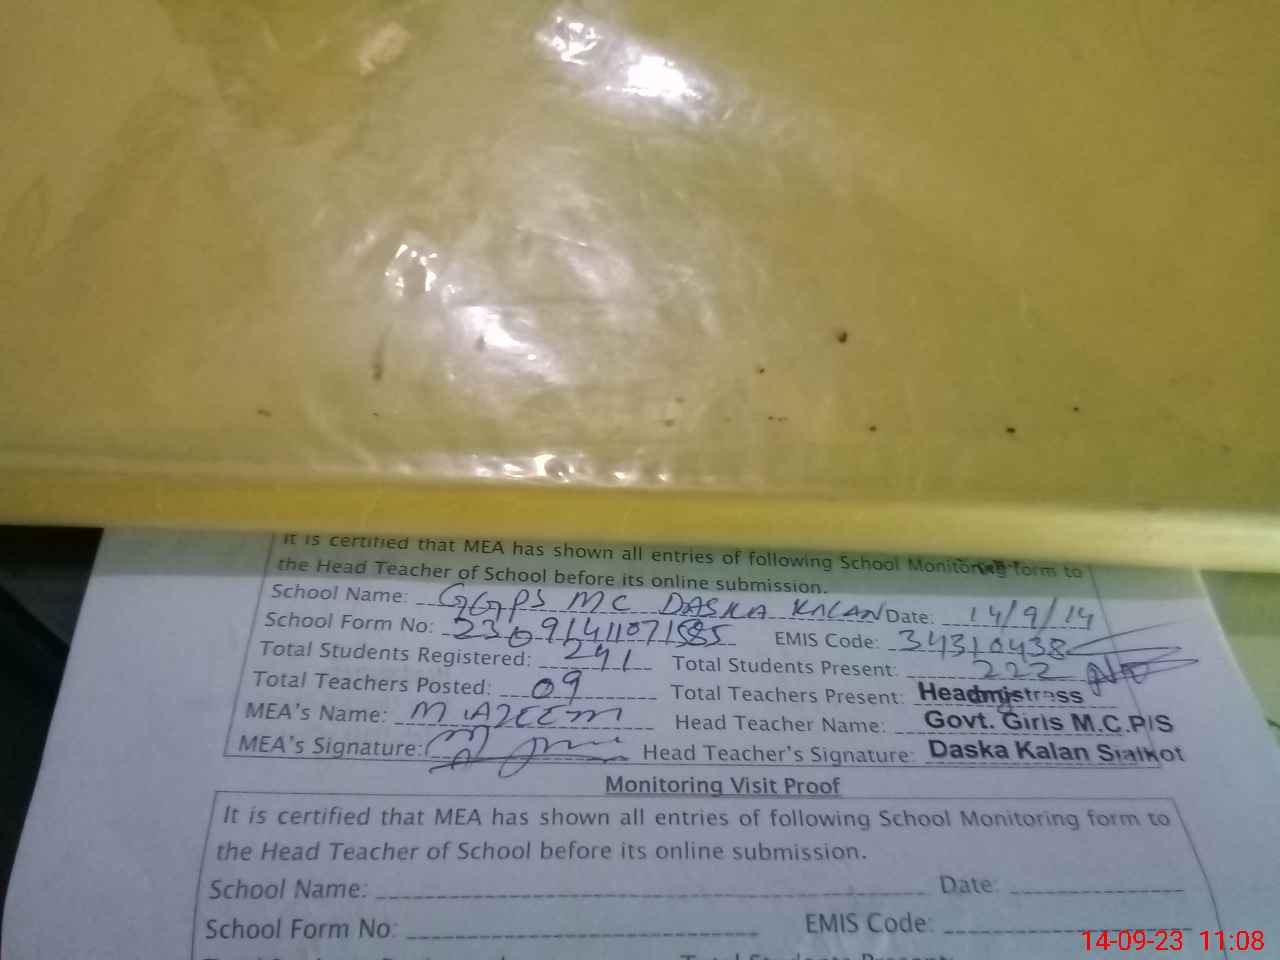 It is certified that MEA has shown all entries of following School Monitoring form to
the Head Teacher of School before its online submission.
School Name: GGPS MC DASKA KALAN Date: 14/9/14
School Form No: EMIS Code: 34310438
Total Students Registered: 241 Total Students Present: 222
Total Teachers Posted: 09 Total Teachers Present: Headmistress
MEA's Name: M AZEEM Head Teacher Name: Govt. Girls M.C.P/S
MEA's Signature: Head Teacher's Signature: Daska Kalan Sialkot
Monitoring Visit Proof
It is certified that MEA has shown all entries of following School Monitoring form to
the Head Teacher of School before its online submission.
School Name: Date:
School Form No: EMIS Code:
14-09-23 11:08